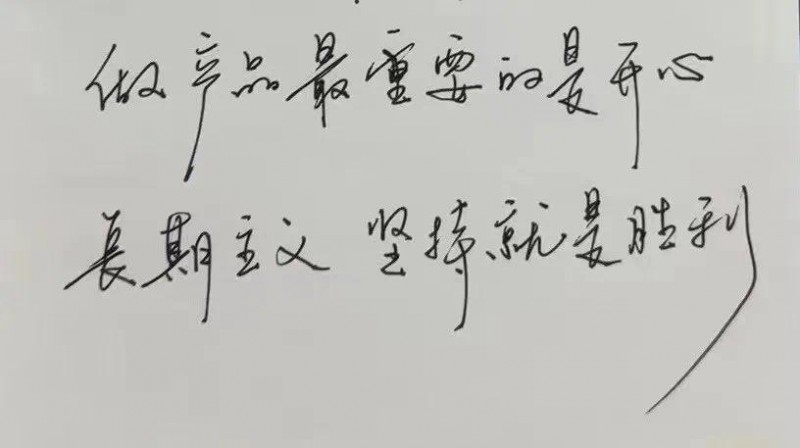 做产品最重要的是开心
長期主义 坚持就是胜利